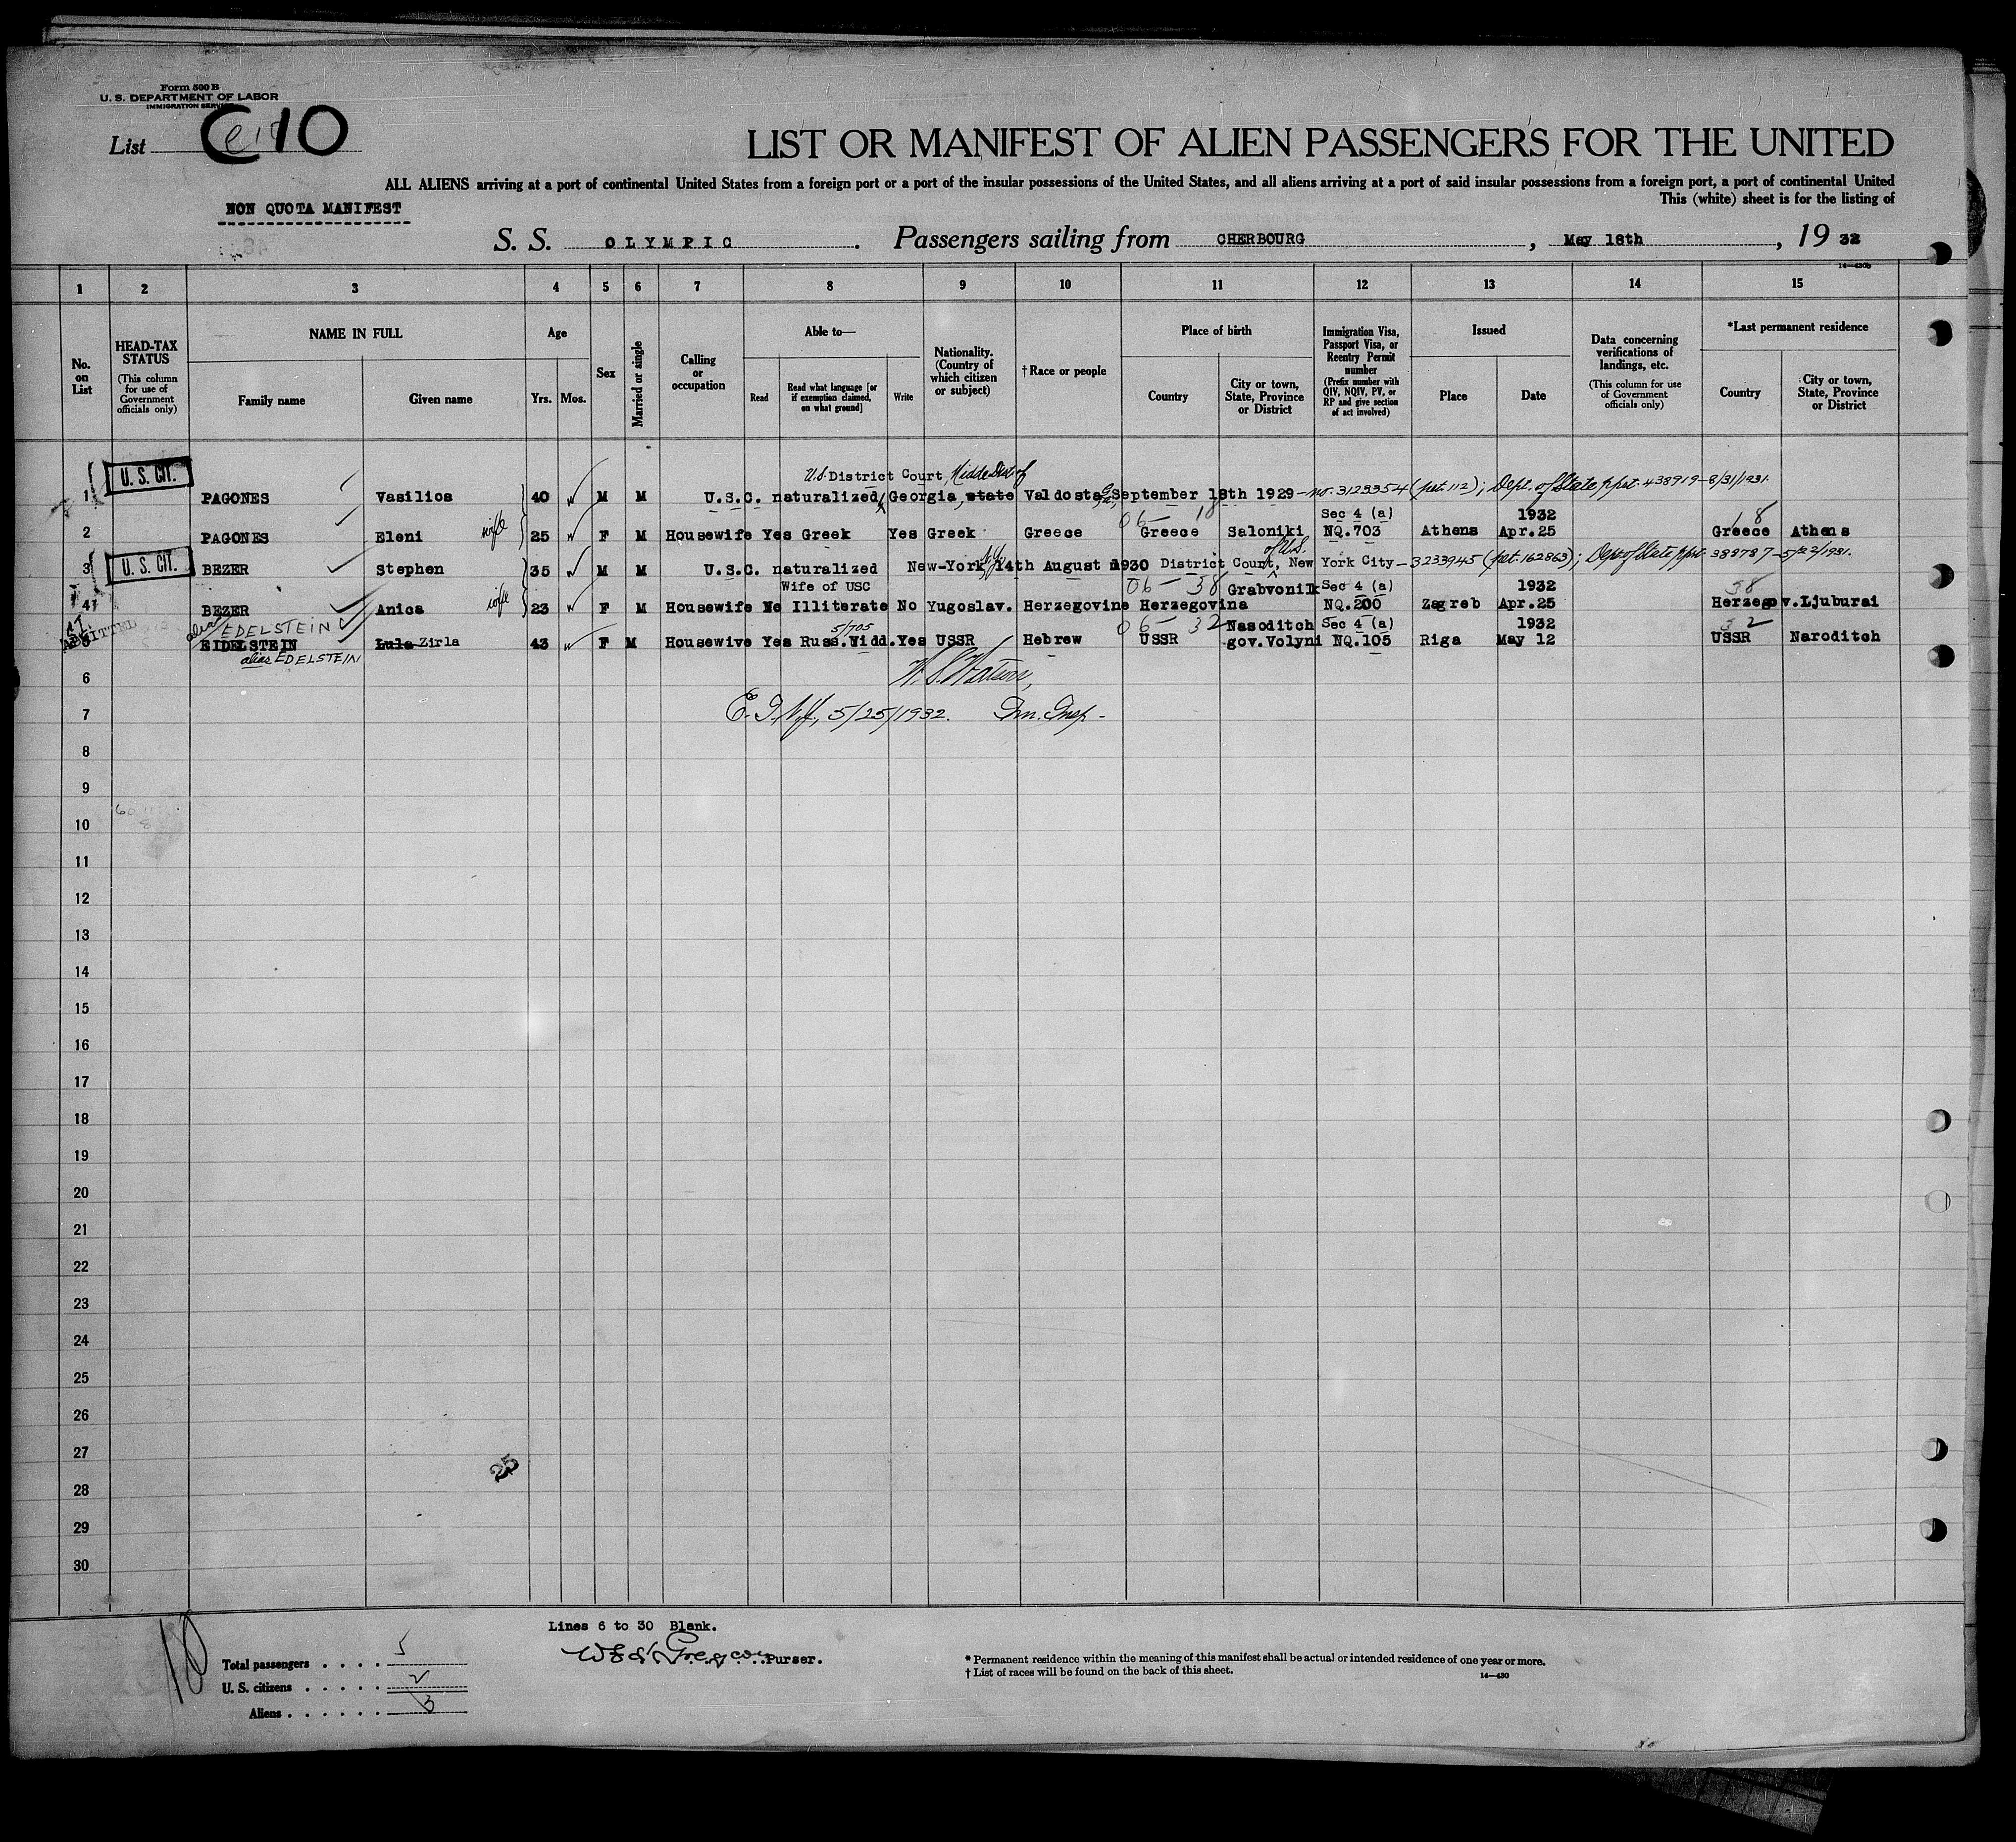 Form 500 B
U. S. DEPARTMENT OF LABOR
IMMIGRATION SERVICE
List C 10
LIST OR MANIFEST OF ALIEN PASSENGERS FOR THE UNITED
ALL ALIENS arriving at a port of continental United States from a foreign port or a port of the insular possessions of the United States, and all aliens arriving at a port of said insular possessions from a foreign port, a port of continental United
This (white) sheet is for the listing of
NON QUOTA MANIFEST
S. S. OLYMPIC. Passengers sailing from CHERBOURG, May 18th, 19 32
14—430b
1 2 3 4 5 6 7 8 9 10 11 12 13 14 15
No. on List
HEAD-TAX STATUS (This column for use of Government officials only)
NAME IN FULL
Family name
Given name
Age
Yrs. Mos.
Sex
Married or single
Calling or occupation
Able to—
Read
Read what language [or if exemption claimed, on what ground]
Write
Nationality. (Country of which citizen or subject)
†Race or people
Place of birth
Country
City or town, State, Province or District
Immigration Visa, Passport Visa, or Reentry Permit number (Prefix number with QIV, NQIV, PV, or RP and give section of act involved)
Issued
Place
Date
Data concerning verifications of landings, etc. (This column for use of Government officials only)
*Last permanent residence
Country
City or town, State, Province or District
U.S. District Court, Middle Dist. of
1 U. S. CIT. PAGONES Vasilios 40 M M U.S.C. naturalized, Georgia, state Valdosta, Ga. September 18th 1929 - no. 3123354 (pet. 112); Dept. of State ppt. 438919 - 8/31/1931.
06 - 18 Sec 4 (a) 1932 18
2 PAGONES Eleni wife 25 F M Housewife Yes Greek Yes Greek Greece Greece Saloniki NQ.703 Athens Apr.25 Greece Athens
of U.S.
3 U. S. CIT. BEZER Stephen 35 M M U.S.C. naturalized New-York N.Y. 14th August 1930 District Court, New York City - 3233945 (pet. 162863); Dept of State ppt. 388787 - 5/22/1931.
Wife of USC 06 - 38 Grabvonik Sec 4 (a) 1932 38
4 BEZER Anica wife 23 F M Housewife No Illiterate No Yugoslav. Herzegovine Herzegovina NQ.200 Zagreb Apr.25 Herzegov.Ljuburai
alias EDELSTEIN 5/705 06 - 32 Nasoditch Sec 4 (a) 1932 32
5 ADMITTED EIDELSTEIN Lula Zirla 43 F M Housewive Yes Russ.Widd.Yes USSR Hebrew USSR gov.Volyni NQ.105 Riga May 12 USSR Naroditch
alias EDELSTEIN
6 W. S. Watson,
7 E. I. N.Y., 5/25/1932. Im. Insp-
8
9
10
11
12
13
14
15
16
17
18
19
20
21
22
23
24
25
26
27
25
28
29
30
Lines 6 to 30 Blank.
10
Purser.
Total passengers . . . . 5
U. S. citizens . . . . . 2
Aliens . . . . . . 3
* Permanent residence within the meaning of this manifest shall be actual or intended residence of one year or more.
† List of races will be found on the back of this sheet.
14—430